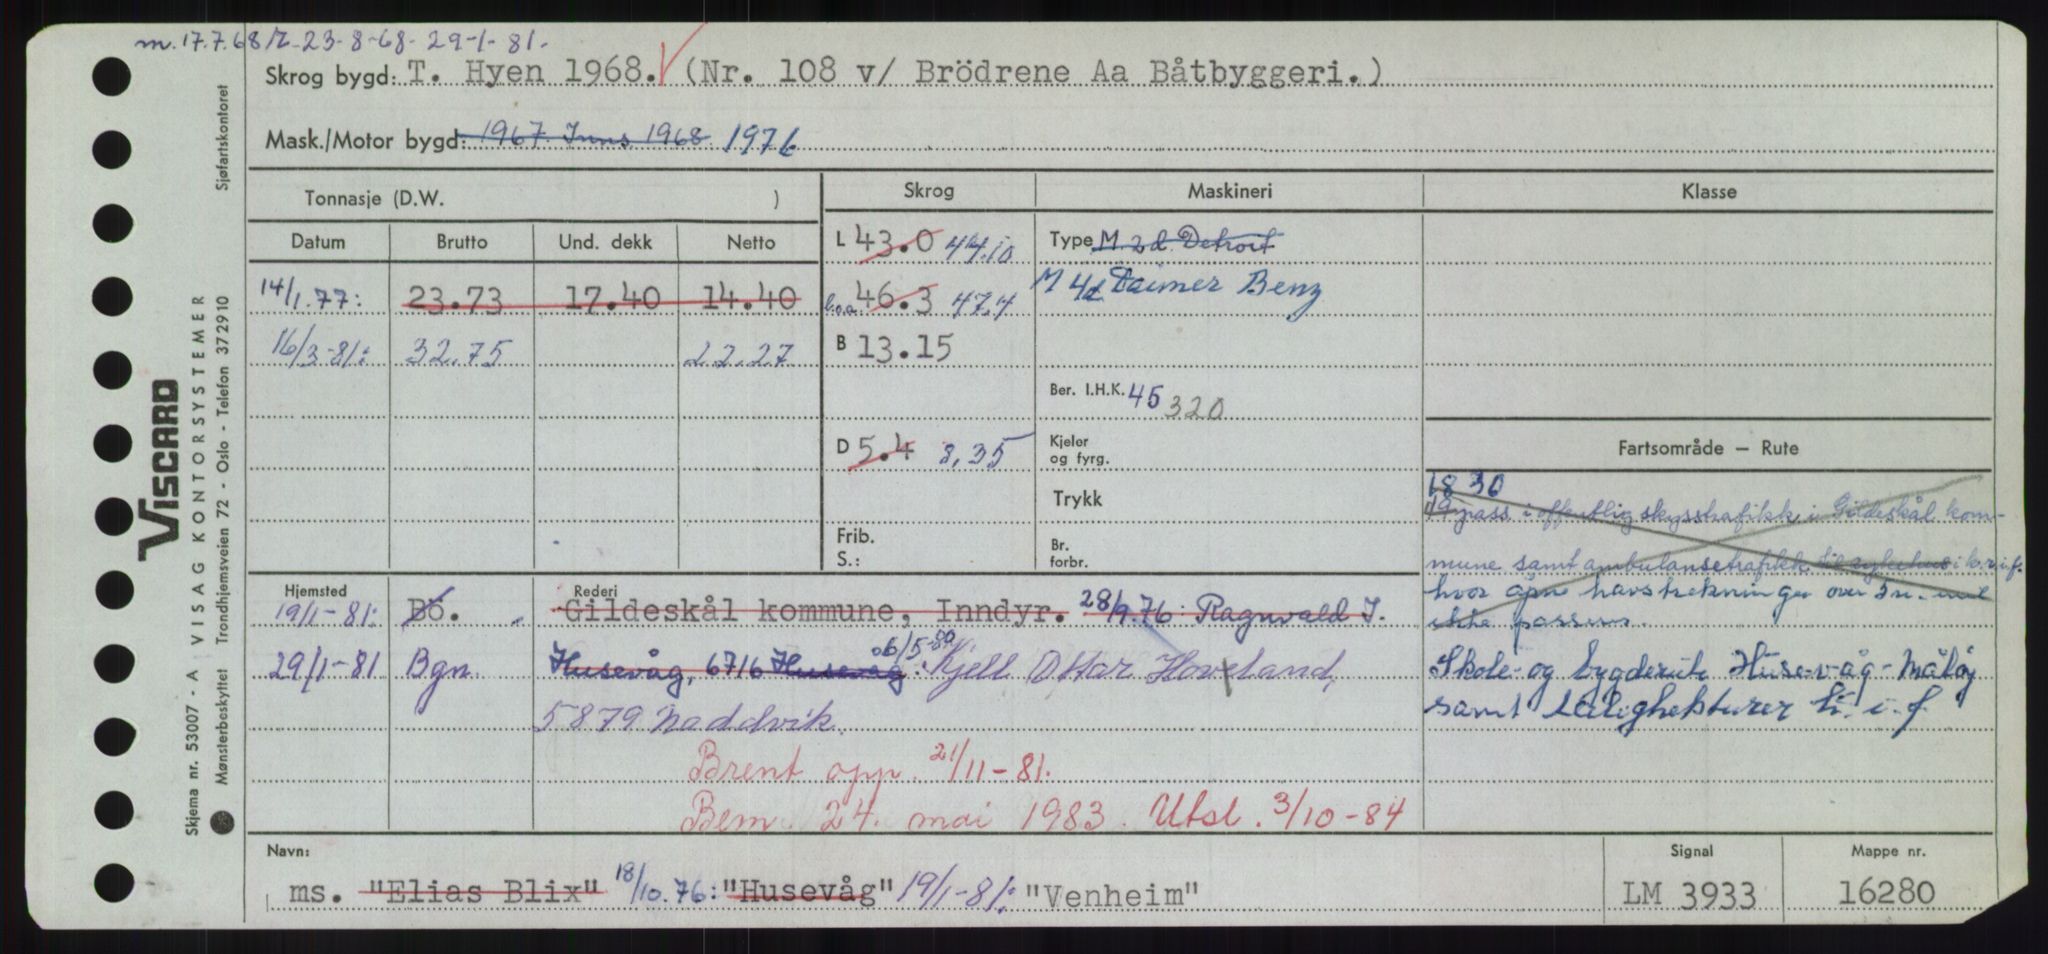 m. 17.7.68/Z-23-8-68-29-1-81.
Skrog bygd: T. Hyen 1968. (Nr. 108 v/ Brödrene Aa Båtbyggeri.)
Mask./Motor bygd: 1967. Inns. 1968 1976
Tonnasje (D.W. ) Skrog Maskineri Klasse
Datum Brutto Und. dekk Netto L 43.0 44.10 Type M. 2d. Detroit
14/1.77: 23.73 17.40 14.40 l.o.a. 46.3 47.4 M 4d. Daimer Benz
16/3-81: 32.75 22.27 B 13.15
Ber. I.H.K. 45 320
D 5.4 8,35 Kjeler og fyrg. Fartsområde — Rute
Trykk
Frib.
S.:
Br. forbr.
18 30
19 pass i offentlig skysstrafikk i Gildeskål kom-
mune samt ambulansetrafikk til sykehus i k.v.i.f.
hvor åpne havstrekninger over 5 n. mil
ikke passeres.
Skole- og bygderute Husevåg - Måløy
samt leilighetsturer k. i. f.
Hjemsted Rederi
19/1-81: Bö. Gildeskål kommune, Inndyr. 28/9.76: Ragnvald J.
29/1-81 Bgn. Husevåg, 6716 Husevåg. 6/5-80 Kjell Ottar Hoveland,
5879 Naddvik.
Brent opp. 21/11-81.
Bem. 24. mai 1983. Utsl. 3/10-84
Navn: Signal Mappe nr.
ms. "Elias Blix" 18/10.76: "Husevåg" 19/1-81: "Venheim" LM 3933 16280
VISCARD
Skjema nr. 53007 - A VISAG KONTORSYSTEMER
Mønsterbeskyttet Trondhjemsveien 72 - Oslo - Telefon 372910 Sjøfartskontoret